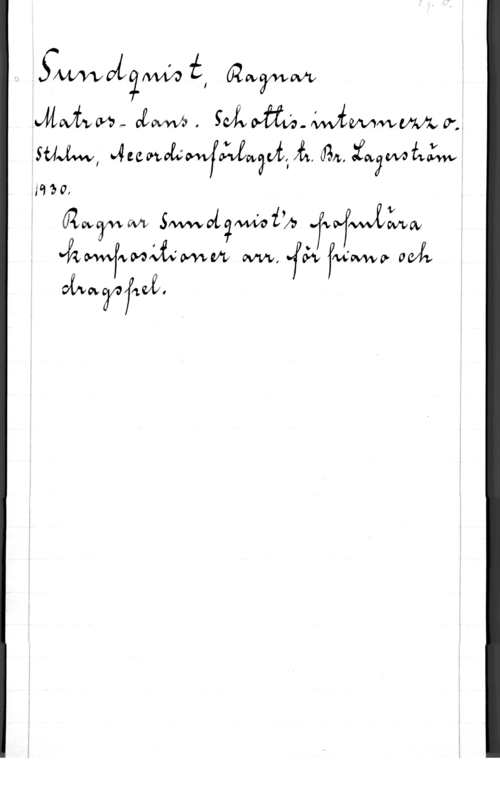 Sundqvist, Ragnar
Matros-dans. Schottis-intermezzo.
Sthlm, Accordionförlaget; tr. Br. Lagerström
1930.
Ragnar Sundqvist's populära
kompositioner arr. för piano och
dragspel.